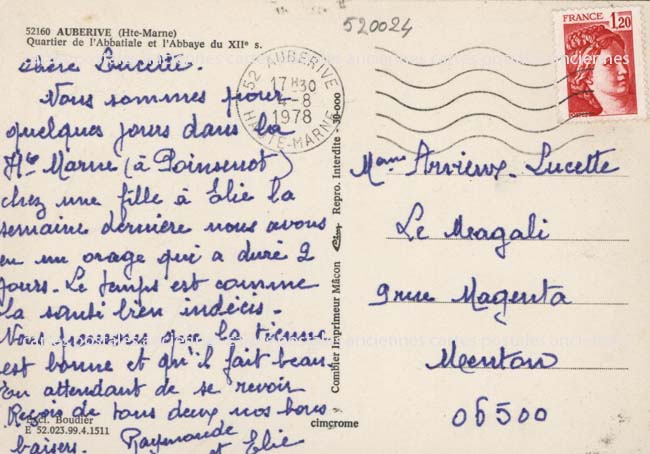 520024
52160 AUBERIVE (Hte-Marne)
Quartier de l'Abbatiale et l'Abbaye du XIIe s.
chère Lucette.
Nous sommes pour
quelques jours dans la
Hte Marne (à Poinsenot)
chez une fille à Elie la
semaine dernière nous avons
eu un orage qui a duré 2
jours - Le temps est comme
la santé bien indécis -
Nous pensons que la tienne
est bonne et qu'il fait beau
En attendant de se revoir
Reçois de tous deux nos bons
baisers. Raymonde
et Elie
Excl. Boudier
E 52.023.99.4.1511
52 AUBERIVE
17H30
4-8
1978
HAUTE-MARNE
FRANCE 1,20
POSTES
Combier Imprimeur Mâcon Repro. Interdite - 30-000
cimcrome
Mame Arvieux Lucette
Le Magali
9 rue Magenta
Menton
06500
cartes postales anciennes cartes postales anciennes